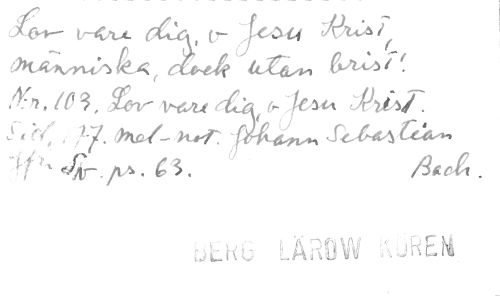 Lov vare dig, o Jesu Krist,
människa, dock utan brist!
N:r. 103. Lov vare dig, o Jesu Krist.
Sid. 177. mel-not. Johann Sebastian
Jfr Sv. ps. 63. Bach.
BERG LÄROW KÖREN